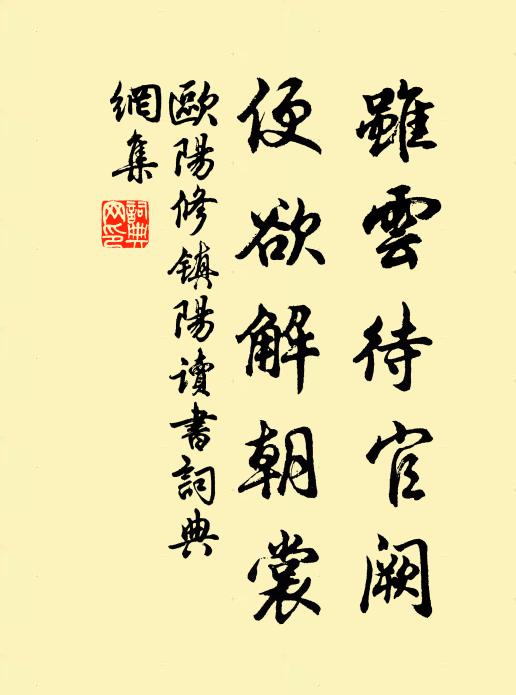 雖雲待官闕
便欲解朝裳
歐陽修鎮陽讀書詞典
網集
詞典網印